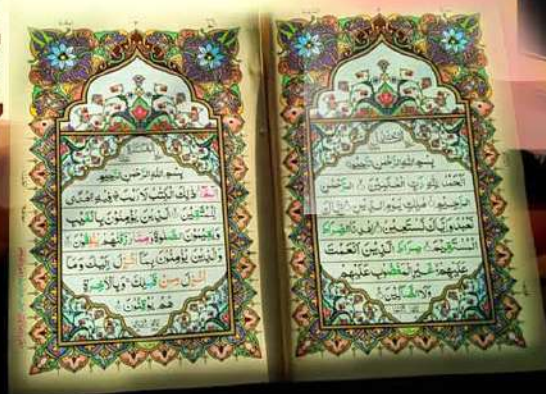 بِسْمِ اللهِ الرَّحْمٰنِ الرَّحِيْمِ
اَلْحَمْدُ لِلّٰهِ رَبِّ الْعٰلَمِيْنَ ۙ الرَّحْمٰنِ
الرَّحِيْمِ ۙ مٰلِكِ يَوْمِ الدِّيْنِ ۗ اِيَّاكَ
نَعْبُدُ وَاِيَّاكَ نَسْتَعِيْنُ ۗ اِهْدِنَا الصِّرَاطَ
الْمُسْتَقِيْمَ ۙ صِرَاطَ الَّذِيْنَ اَنْعَمْتَ
عَلَيْهِمْ غَيْرِ الْمَغْضُوْبِ عَلَيْهِمْ
وَلَا الضَّآلِّيْنَ
بِسْمِ اللهِ الرَّحْمٰنِ الرَّحِيْمِ
الٓمّٓ ۚ ذٰلِكَ الْكِتٰبُ لَا رَيْبَ فِيْهِ هُدًى
لِّلْمُتَّقِيْنَ ۙ الَّذِيْنَ يُؤْمِنُوْنَ بِالْغَيْبِ
وَيُقِيْمُوْنَ الصَّلٰوةَ وَمِمَّا رَزَقْنٰهُمْ يُنْفِقُوْنَ
وَالَّذِيْنَ يُؤْمِنُوْنَ بِمَآ اُنْزِلَ اِلَيْكَ وَمَآ
اُنْزِلَ مِنْ قَبْلِكَ وَبِالْاٰخِرَةِ
هُمْ يُوْقِنُوْنَ